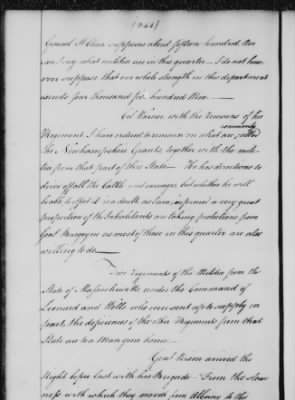 (344)
General St Clair supposes about fifteen hundred Nor
can I say what militia are in this quarter. I do not how-
ever suppose that our whole strength in this department
exceeds four thousand six hundred Men
Col Warner with the remains of his
Regiment I have ordered to remain on what are commonly called
the Newhampshire Grants, together with the mili-
tia from that part of this State— He has directions to
drive off all the Cattle and carriages, but whether he will
be able to effect it is a doubt, as I am informed a very great
proportion of the Inhabitants are taking protections from
Genl Burgoyne as most of those in this quarter are also
willing to do—
Two Regiments of the Militia from the
State of Massachusetts under the Command of
Leonard and Wells, who were sent up to supply in
part, the deficiency of the Nine Regiments from that
State are to a Man gone home.
Genl Nixon arrived the
Night before last with his Brigade— From the slow-
ness with which they moved from Albany to this